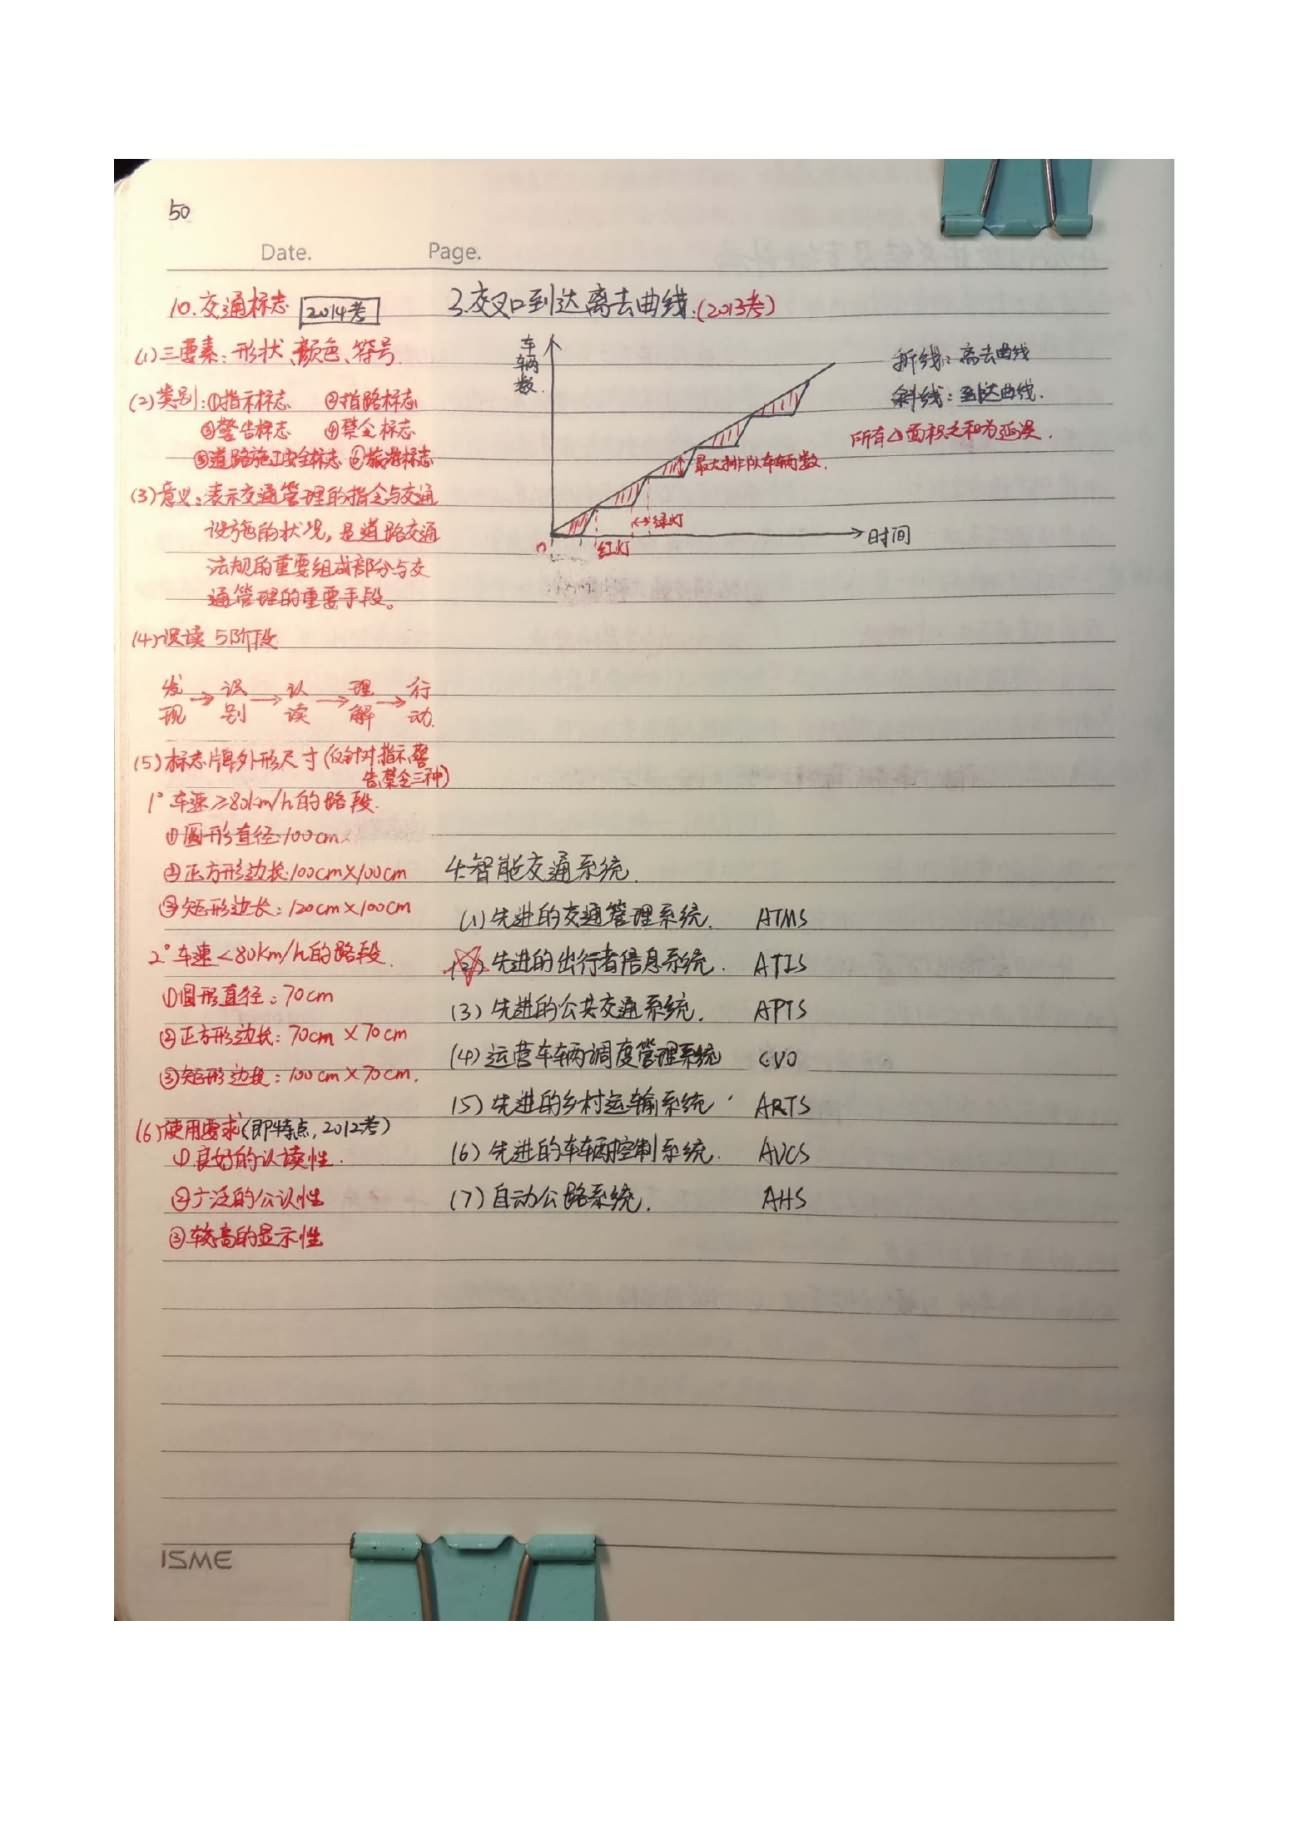 50
Date. Page.
10.交通标志 2014考
(1)三要素:形状、颜色、符号.
(2)类别:①指示标志 ②指路标志
③警告标志 ④禁令标志
⑤道路施工安全标志 ⑥旅游标志
(3)意义:表示交通管理的指令与交通
设施的状况,是道路交通
法规的重要组成部分与交
通管理的重要手段。
(4)识读5阶段
发现→识别→认读→理解→行动.
(5)标志牌外形尺寸(仅针对指示、警
告、禁令三种)
1°车速≥80km/h的路段.
①圆形直径:100cm.
②正方形边长:100cm×100cm
③矩形边长:120cm×100cm
2°车速<80km/h的路段.
①圆形直径:70cm
②正方形边长:70cm×70cm
③矩形边长:100cm×70cm.
(6)使用要求(即特点,2012考)
①良好的认读性.
②广泛的公认性
③较高的显示性
3.交叉口到达离去曲线.(2013考)
车辆数.
折线:离去曲线
斜线:到达曲线.
所有△面积之和为延误.
最大排队车辆数.
绿灯
红灯
0
时间
4.智能交通系统.
(1)先进的交通管理系统. ATMS
(2)先进的出行者信息系统. ATIS
(3)先进的公共交通系统. APTS
(4)运营车辆调度管理系统 CVO
(5)先进的乡村运输系统 ARTS
(6)先进的车辆控制系统. AVCS
(7)自动公路系统. AHS
ISME